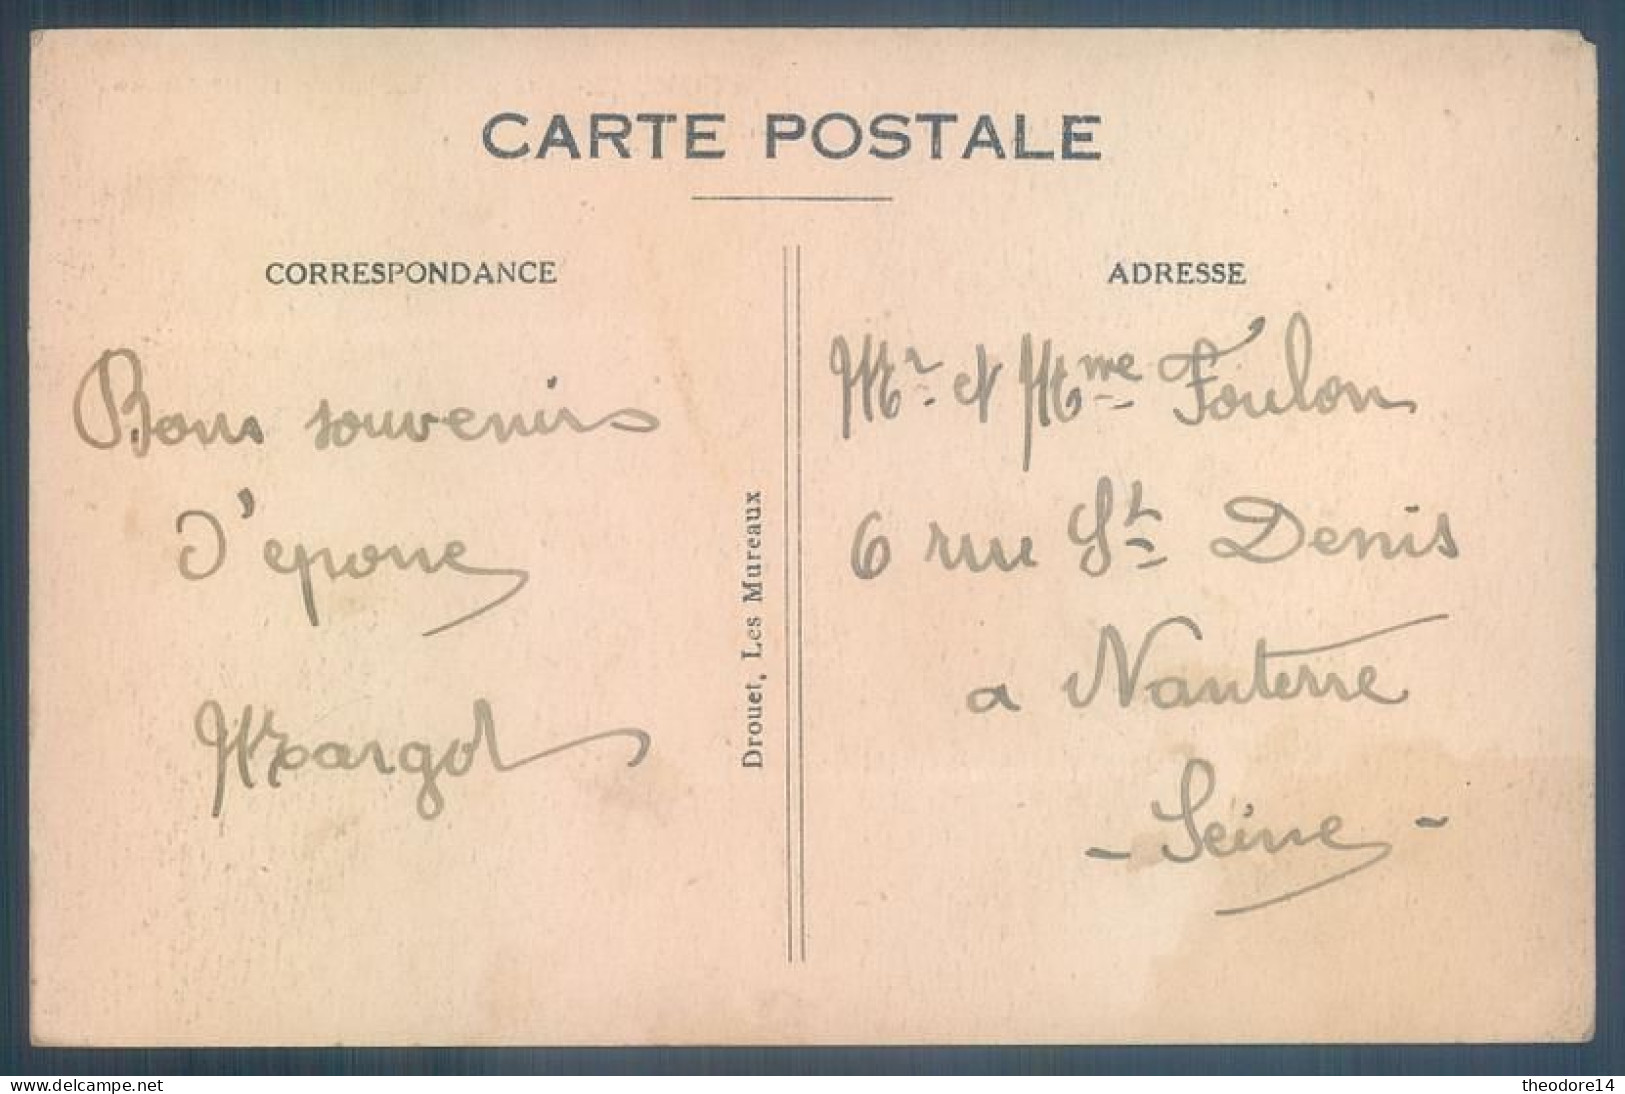 CARTE POSTALE
CORRESPONDANCE
Bons souvenirs
d'epone
Margot
Drouet, Les Mureaux
ADRESSE
Mr et Mme Foulon
6 rue St Denis
a Nanterre
- Seine -
www.delcampe.net
theodore14